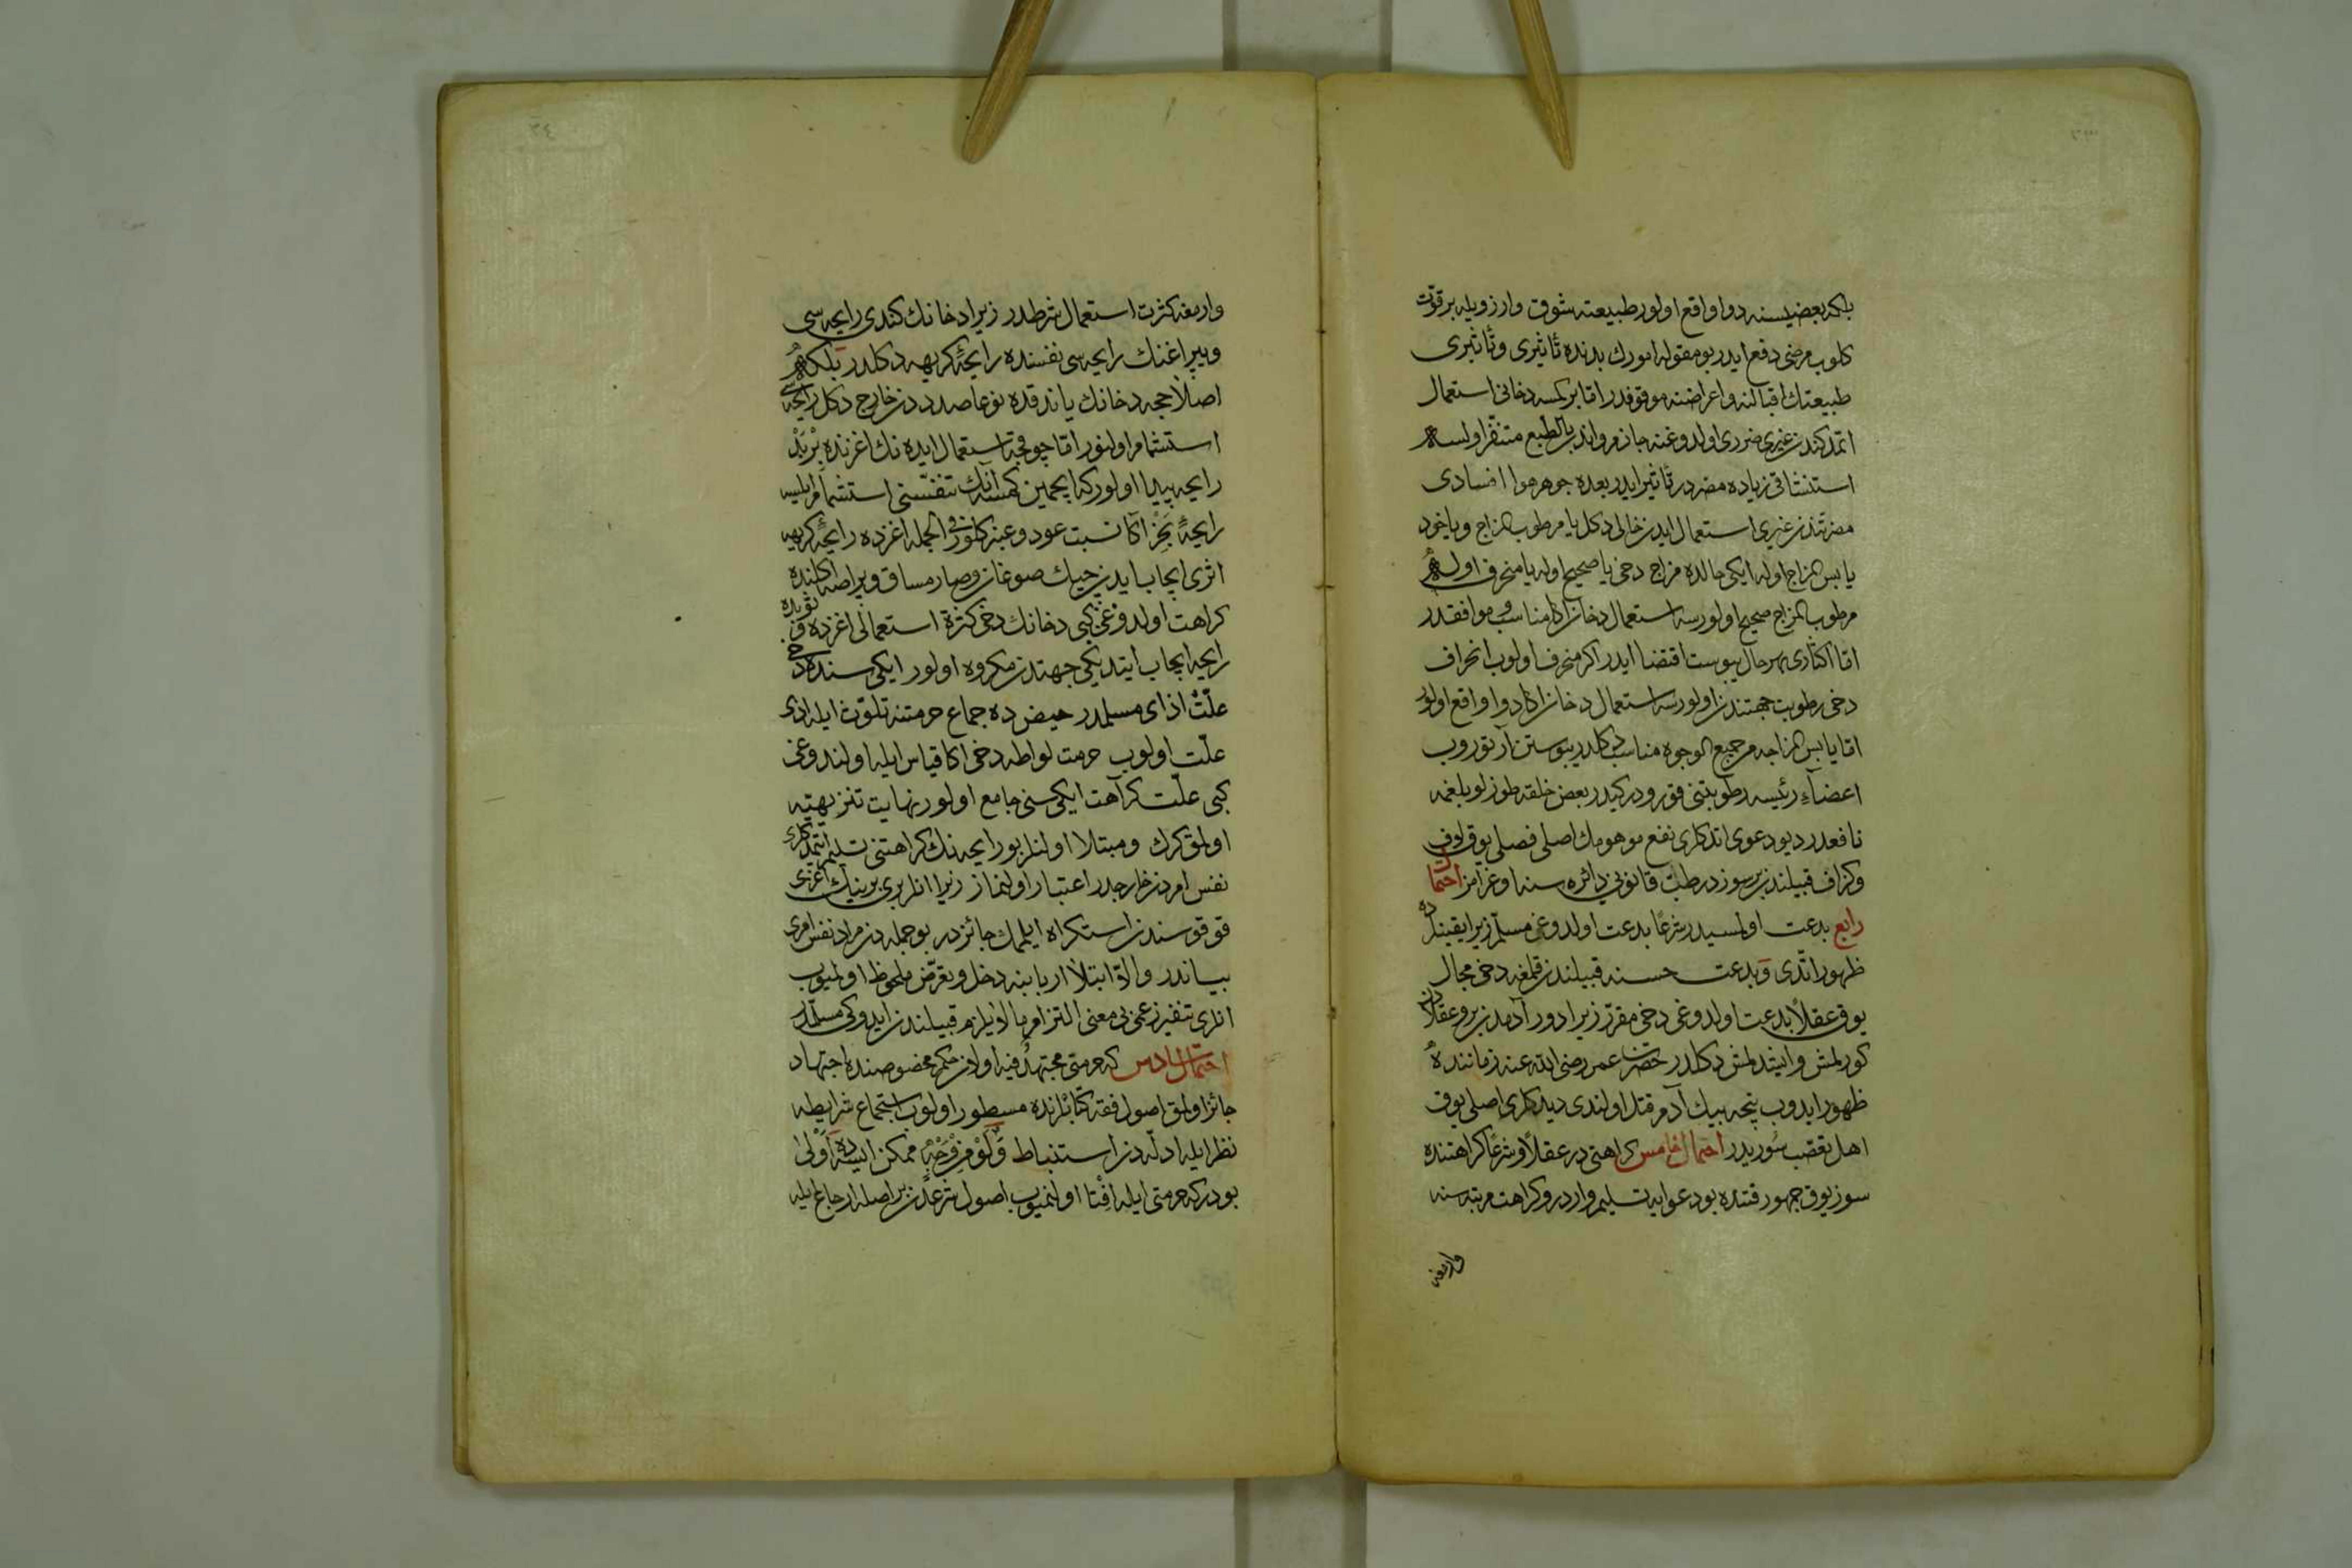 بلكه بعضيسنه دوا واقع اولور طبيعته شوق وارزويله بر قوّت
كلوب مرضى دفع ايدر بو مقوله امورك بدنده تأثيرى وتأثيرى
طبيعتك اقبالنه واعراضنه موقوفدر امّا بر كمسه دخانى استعمال
اتمدكندن غيرى ضررى اولدوغنه جازم واندن بالطبع متنفّر اولسه
استنشاقى زياده مضردر تأثير ايدر بعده جوهر هوا افسادى
مضرتندن غيرى استعمال ايدن خالى دكل يا مرطوب المزاج ويا خود
يابس المزاج اوله ايكى حالده مزاج دخى يا صحيح اوله يا منحرف اوله
مرطوب المزاج صحيح اولورسه استعمال دخان اكا مناسب و موافقدر
امّا اكثارى بهر حال يبوست اقتضا ايدر اكر منحرف اولوب انحراف
دخى رطوبت جهتندن اولورسه استعمال دخان اكا دوا واقع اولور
امّا يابس المزاجه من جميع الوجوه مناسب دكلدر يبوستن آرتوروب
اعضآء رئيسه رطوبتنى قورودر كيدر بعض خلقه طوزلو بلغمه
نافعدر ديو دعوى اتدكلرى نفع موهومك اصلى فصلى يوق لاف
وكزاف قبيلندن بر سوزدر طبّ قانونى دائره سنه اوغرامز احتمال
رابع بدعت اولمسيدر شرعًا بدعت اولدوغى مسلّم زيرا يقينلرده
ظهور اتّدى وَبدعت حسنه قبيلندن قلمغه دخى مجال
يوق عقلاً بدعت اولدوغى دخى مقرّر زيرا دور آدمدن برو عقلادن
كورلمش وايشدلمش دكلدر حضرت عمر رضى الله عنه زماننده
ظهور ايدوب نيجه بيك آدم قتل اولندى ديدكلرى اصلى يوق
اهل تعصّب سوزيدر احتمال خامس كراهتى در عقلاً و شرعًا كراهتنده
سوز يوق جمهور قتنده بو دعوايه تسليم واردر و كراهت مرتبه سنه
وارمغه
وارمغه كثرت استعمال شرطدر زيرا دخانك كندى رايحه سى
وپپراغنك رايحه سى نفسنده رايحۀ كريهه دكلدر بلكه
اصلا حجه دخانك ياندقده نوعا صددن خارج دكل رايحه سى
استشمام اولنور امّا چوقجه استعمال ايده نك اغزنده بر بد
رايحه پيدا اولور كه ايچمين كمسه آنك تنفّسنى استشمام ايلسه
رايحۀ بَخَر اكا نسبت عود و عنبر كلور فى الجمله اغزده رايحۀ كريهه
اثرى ايجاب ايدن چيك صوغان و صارمساق و پراصه اكلنده
كراهت اولدوغى كبى دخانك دخى كثرة استعمالى اغزده
رايحه ايجاب ايتديكى جهتدن مكروه اولور ايكى سنده دخى
علّت اذاى مسلمدر حيض ده جماع حرمتنه تلوّث ايله اذى
علّت اولوب حرمت لواطه دخى اكا قياس ايله اولندوغى
كبى علّت كراهت ايكى سنى جامع اولور نهايت تنزيهيّه
اولمق كرك و مبتلا اولنلر بو رايحه نك كراهتنى تسليم ايتمدكلرى
نفس امردن خارجدر اعتبار اولنماز زيرا انلر برى برينك اغزى
قوقوسندن استكراه ايلمك جائزدر بو جمله دن مراد نفس امرى
بياندر والاّ ابتلا اربابنه دخل و تعرّض ملحوظ اولميوب
انلرى تنفير زعمى بى معنى التزام ما لا يلزم قبيلندن ايدوكى مسلّمدر
احتمال سادس كه حرمتى مجتهدٌ فيه اولان حكم مخصوصنده اجتهاد
جائز اولمق اصول فقه كتابلرنده مسطور اولوب استجماع شرايطه
نظر ايله ادلّه دن استنباط وَلَوْ مِنْ وَجْهٍ ممكن ايسه ده اَوْلى
بودر كه حرمتى ايله اِفْتا اولنميوب اصول شرعدن بر اصله ارجاع ايله